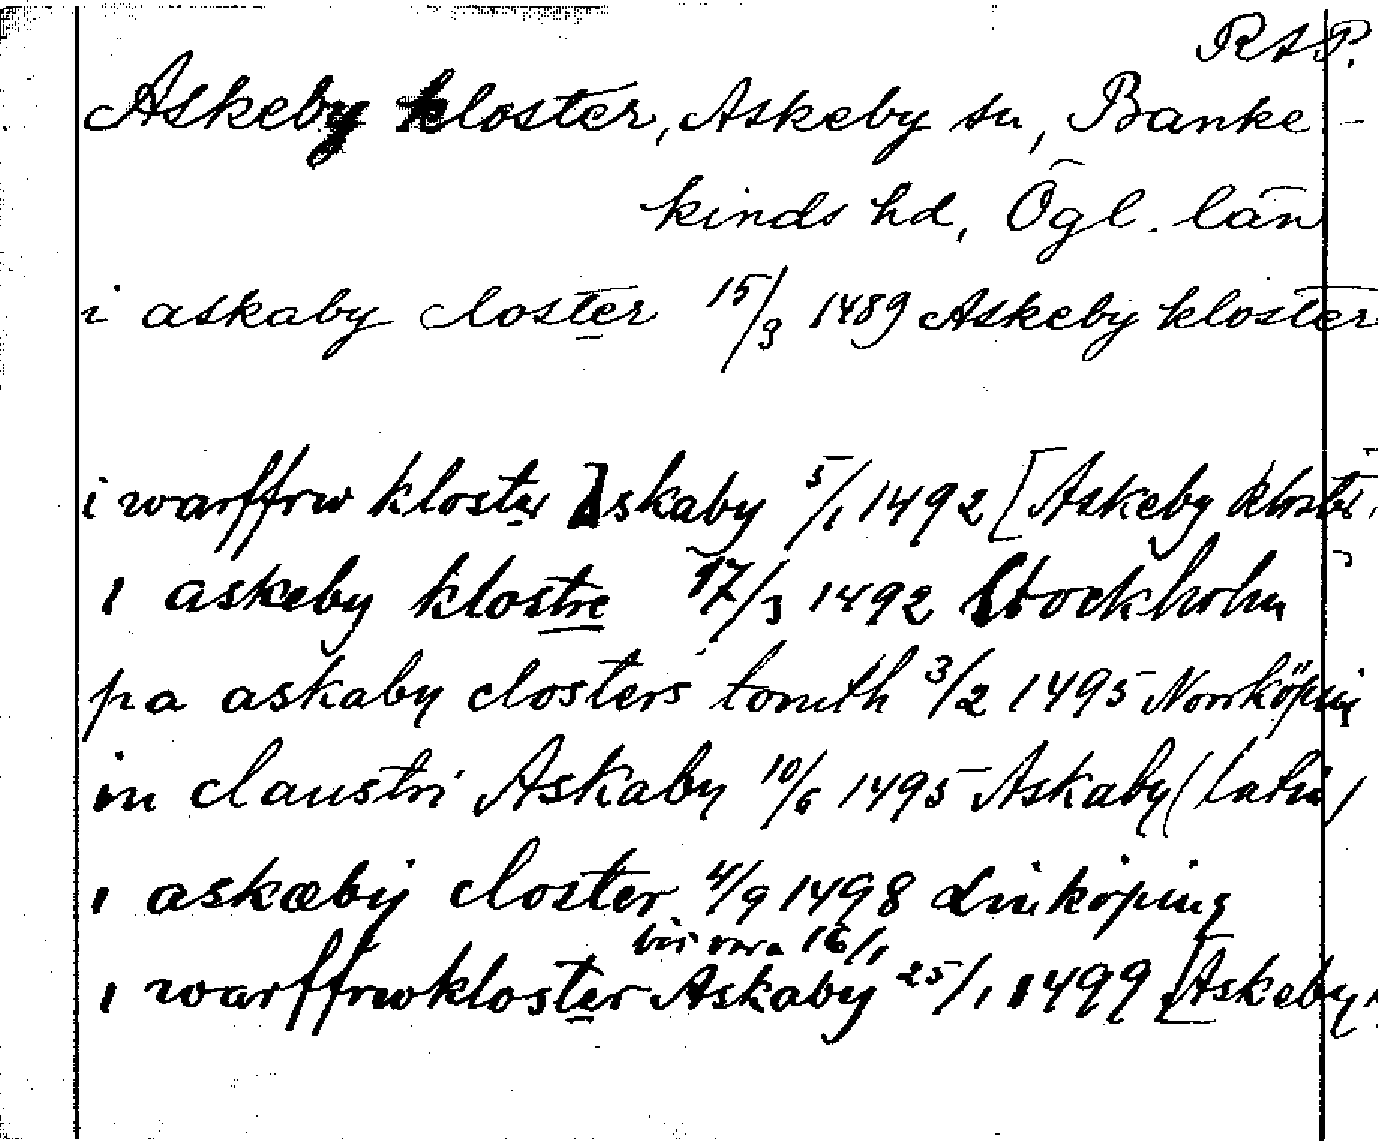 RAP.
Askeby kloster, Askeby sn, Banke-
kinds hd, Ögl. län
i askaby closter 15/3 1489 Askeby kloster
i warffrw kloster Askaby 5/1 1492 [Askeby kloster
i askeby klostre 17/3 1492 Stockholm
pa askaby closters tomth 3/2 1495 Norrköping
in claustri Askaby 10/6 1495 Askaby (latin)
i askæby closter 4/9 1498 Linköping
bör vara 16/1
i warffrwkloster Askaby 25/1 1499 [Askeby